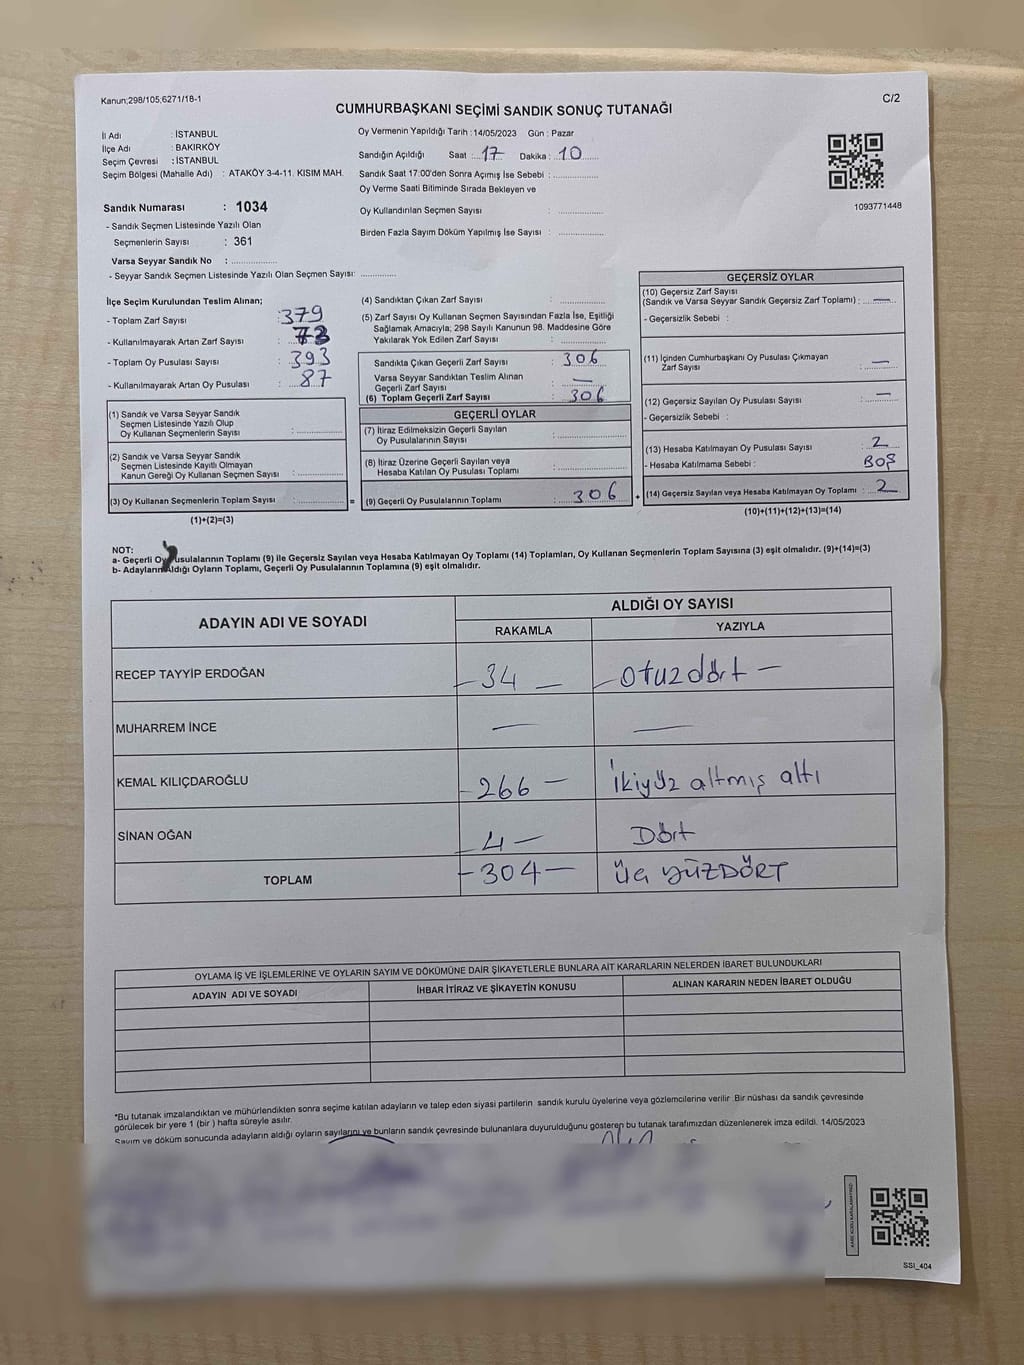 Kanun;298/105;6271/18-1
C/2
CUMHURBAŞKANI SEÇİMİ SANDIK SONUÇ TUTANAĞI
İl Adı : İSTANBUL
İlçe Adı : BAKIRKÖY
Seçim Çevresi : İSTANBUL
Seçim Bölgesi (Mahalle Adı) : ATAKÖY 3-4-11. KISIM MAH.
Sandık Numarası : 1034
- Sandık Seçmen Listesinde Yazılı Olan
Seçmenlerin Sayısı : 361
Varsa Seyyar Sandık No : ..............
- Seyyar Sandık Seçmen Listesinde Yazılı Olan Seçmen Sayısı: ............
Oy Vermenin Yapıldığı Tarih : 14/05/2023 Gün : Pazar
Sandığın Açıldığı Saat : 17 Dakika : 10
Sandık Saat 17:00'den Sonra Açımış İse Sebebi : ..............
Oy Verme Saati Bitiminde Sırada Bekleyen ve
Oy Kullandırılan Seçmen Sayısı : ..............
Birden Fazla Sayım Döküm Yapılmış İse Sayısı : ..............
1093771448
İlçe Seçim Kurulundan Teslim Alınan;
- Toplam Zarf Sayısı : 379
- Kullanılmayarak Artan Zarf Sayısı : 73
- Toplam Oy Pusulası Sayısı : 393
- Kullanılmayarak Artan Oy Pusulası : 87
(1) Sandık ve Varsa Seyyar Sandık
Seçmen Listesinde Yazılı Olup
Oy Kullanan Seçmenlerin Sayısı : ..............
(2) Sandık ve Varsa Seyyar Sandık
Seçmen Listesinde Kayıtlı Olmayan
Kanun Gereği Oy Kullanan Seçmen Sayısı : ..............
(3) Oy Kullanan Seçmenlerin Toplam Sayısı : .............. =
(1)+(2)=(3)
(4) Sandıktan Çıkan Zarf Sayısı : ..............
(5) Zarf Sayısı Oy Kullanan Seçmen Sayısından Fazla İse, Eşitliği
Sağlamak Amacıyla; 298 Sayılı Kanunun 98. Maddesine Göre
Yakılarak Yok Edilen Zarf Sayısı : ..............
Sandıkta Çıkan Geçerli Zarf Sayısı : 306
Varsa Seyyar Sandıktan Teslim Alınan
Geçerli Zarf Sayısı : —
(6) Toplam Geçerli Zarf Sayısı : 306
GEÇERLİ OYLAR
(7) İtiraz Edilmeksizin Geçerli Sayılan
Oy Pusulalarının Sayısı : ..............
(8) İtiraz Üzerine Geçerli Sayılan veya
Hesaba Katılan Oy Pusulası Toplamı : ..............
(9) Geçerli Oy Pusulalarının Toplamı : 306 +
GEÇERSİZ OYLAR
(10) Geçersiz Zarf Sayısı
(Sandık ve Varsa Seyyar Sandık Geçersiz Zarf Toplamı) : —
- Geçersizlik Sebebi :
(11) İçinden Cumhurbaşkanı Oy Pusulası Çıkmayan
Zarf Sayısı : —
(12) Geçersiz Sayılan Oy Pusulası Sayısı : —
- Geçersizlik Sebebi :
(13) Hesaba Katılmayan Oy Pusulası Sayısı : 2
- Hesaba Katılmama Sebebi : BOŞ
(14) Geçersiz Sayılan veya Hesaba Katılmayan Oy Toplamı : 2
(10)+(11)+(12)+(13)=(14)
NOT:
a- Geçerli Oy Pusulalarının Toplamı (9) ile Geçersiz Sayılan veya Hesaba Katılmayan Oy Toplamı (14) Toplamları, Oy Kullanan Seçmenlerin Toplam Sayısına (3) eşit olmalıdır. (9)+(14)=(3)
b- Adayların Aldığı Oyların Toplamı, Geçerli Oy Pusulalarının Toplamına (9) eşit olmalıdır.
ADAYIN ADI VE SOYADI ALDIĞI OY SAYISI
RAKAMLA YAZIYLA
RECEP TAYYİP ERDOĞAN — 34 — — otuzdört —
MUHARREM İNCE — —
KEMAL KILIÇDAROĞLU — 266 — İkiyüz altmış altı
SİNAN OĞAN — 4 — Dört
TOPLAM — 304 — üç yüzDÖRT
OYLAMA İŞ VE İŞLEMLERİNE VE OYLARIN SAYIM VE DÖKÜMÜNE DAİR ŞİKAYETLERLE BUNLARA AİT KARARLARIN NELERDEN İBARET BULUNDUKLARI
ADAYIN ADI VE SOYADI İHBAR İTİRAZ VE ŞİKAYETİN KONUSU ALINAN KARARIN NEDEN İBARET OLDUĞU
*Bu tutanak imzalandıktan ve mühürlendikten sonra seçime katılan adayların ve talep eden siyasi partilerin sandık kurulu üyelerine veya gözlemcilerine verilir. Bir nüshası da sandık çevresinde
görülecek bir yere 1 (bir) hafta süreyle asılır.
Sayım ve döküm sonucunda adayların aldığı oyların sayılarını ve bunların sandık çevresinde bulunanlara duyurulduğunu gösteren bu tutanak tarafımızdan düzenlenerek imza edildi. 14/05/2023
SSI_404